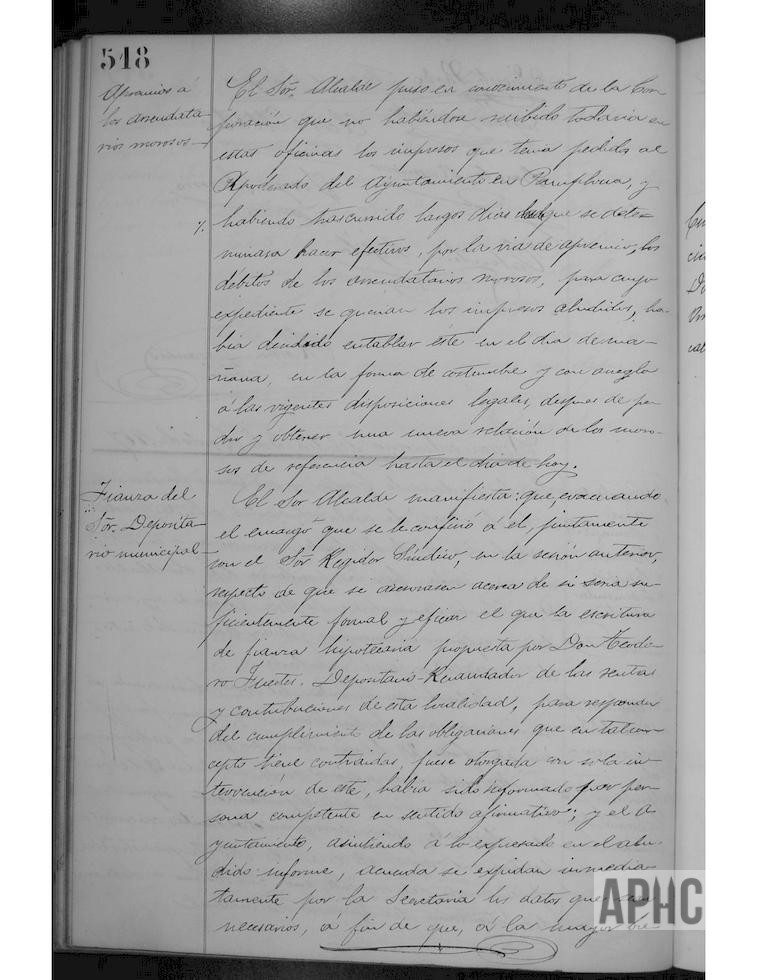 548
Apremios á
los arrendata-
rios morosos
El Sor. Alcalde puso en conocimiento de la Cor-
poración que no habiéndose recibido todavía en
estas oficinas los impresos que tenía pedidos al
Apoderado del Ayuntamiento en Pamplona, y
habiendo trascurrido largos días que se deter-
minara hacer efectivos, por la vía de apremio, los
débitos de los arrendatarios morosos, para cuyo
expediente se querían los impresos aludidos, ha-
bía decidido entablar éste en el día de ma-
ñana, en la forma de costumbre y con arreglo
á las vigentes disposiciones legales, después de pe-
dir y obtener una nueva relación de los moro-
sos de referencia hasta el día de hoy.
Fianza del
Sor. Deposita-
rio municipal
El Sor Alcalde manifiesta: que, evacuando
el encargo que se le confirió á él, juntamente
con el Sor Regidor Síndico, en la sesión anterior,
respecto de que se asesorasen acerca de si sería su-
ficientemente formal y eficaz el que la escritura
de fianza hipotecaria propuesta por Don Teodo-
ro Fuertes, Depositario-Recaudador de las rentas
y contribuciones de esta localidad, para responder
del cumplimiento de las obligaciones que en tal con-
cepto tiene contraídas, fuese otorgada con sola in-
tervención de éste, había sido informado por per-
sona competente en sentido afirmativo; y el A-
yuntamiento, asintiendo á lo expresado en el alu-
dido informe, acuerda se expidan inmedia-
tamente por la Secretaría los datos que sean
necesarios, á fin de que, á la mayor bre-
APHC